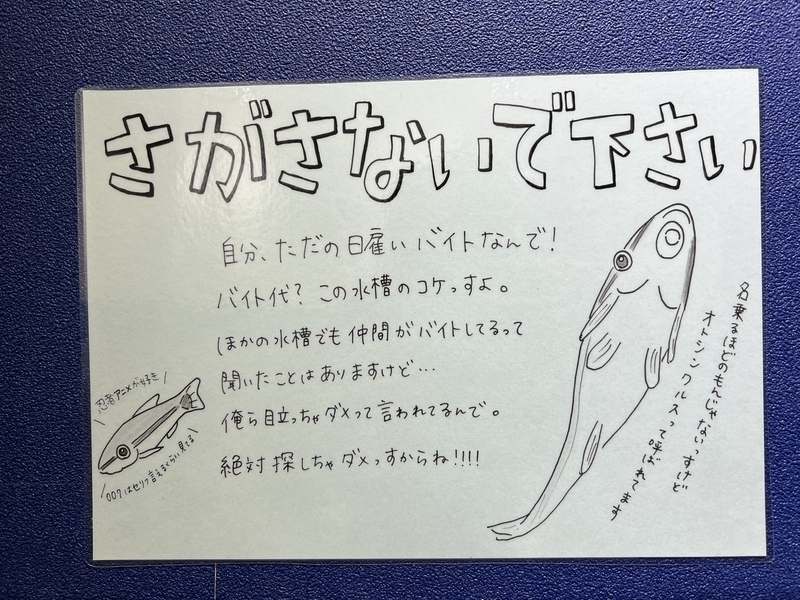 さがさないで下さい
自分、ただの日雇いバイトなんで!
バイト代? この水槽のコケっすよ。
ほかの水槽でも仲間がバイトしてるって
聞いたことはありますけど…
俺ら目立っちゃダメって言われてるんで。
絶対探しちゃダメっすからね!!!!
名乗るほどのもんじゃないっすけど
オトシンクルスって呼ばれてます
忍者アニメが好き
007はセリフ言えるくらい見てる